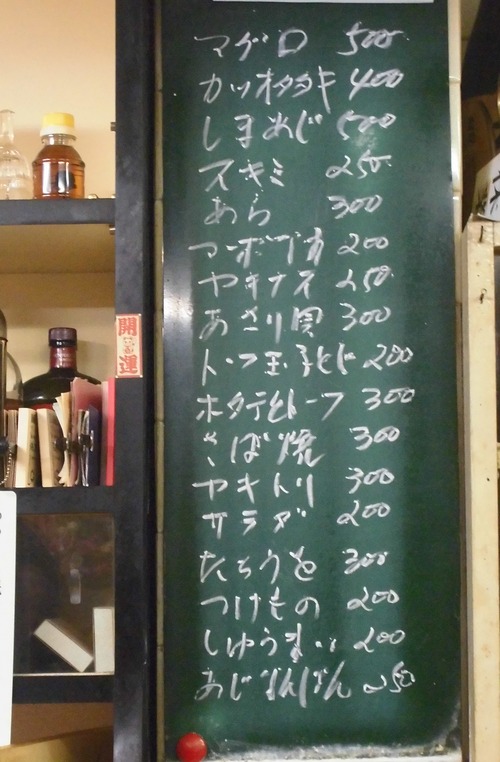 マグロ 500
カツオタタキ 400
しまあじ 500
スキミ 250
あら 300
マーボーナス 200
ヤキナス 250
あさり貝 300
トーフ玉子とじ 200
ホタテとトーフ 300
さば焼 300
ヤキトリ 300
サラダ 200
たちうを 300
つけもの 200
しゅうまい 200
あじ 250
開運